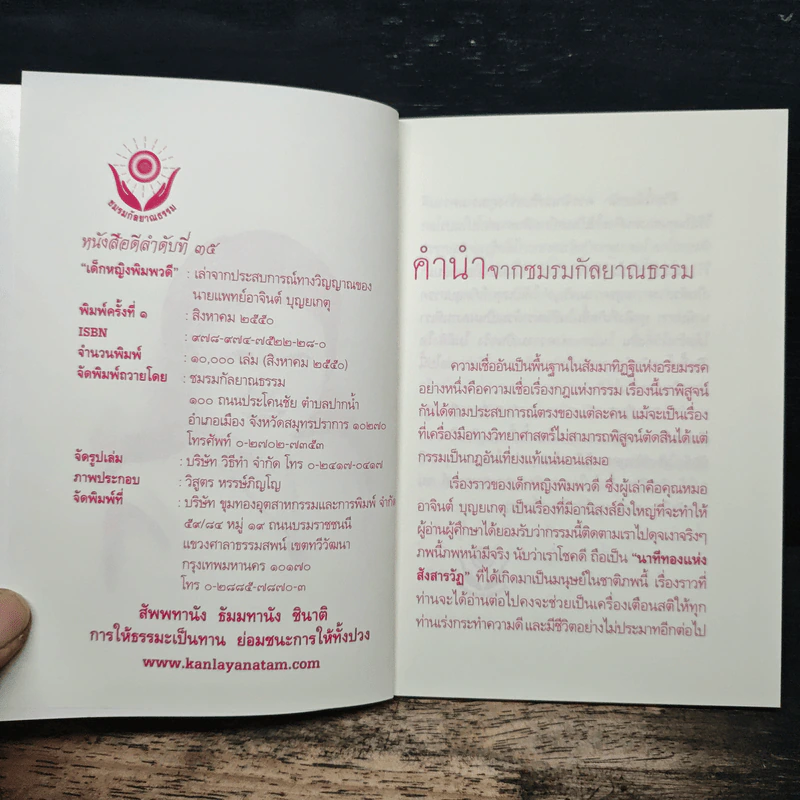 ชมรมกัลยาณธรรม
หนังสือดีลำดับที่ ๓๕
"เด็กหญิงพิมพวดี" : เล่าจากประสบการณ์ทางวิญญาณของ
นายแพทย์อาจินต์ บุญยเกตุ
พิมพ์ครั้งที่ ๑ : สิงหาคม ๒๕๕๐
ISBN : ๙๗๘-๙๗๔-๗๕๒๒-๒๘-๐
จำนวนพิมพ์ : ๑๐,๐๐๐ เล่ม (สิงหาคม ๒๕๕๐)
จัดพิมพ์ถวายโดย : ชมรมกัลยาณธรรม
๑๐๐ ถนนประโคนชัย ตำบลปากน้ำ
อำเภอเมือง จังหวัดสมุทรปราการ ๑๐๒๗๐
โทรศัพท์ ๐-๒๗๐๒-๗๓๕๓
จัดรูปเล่ม : บริษัท วิธีทำ จำกัด โทร ๐-๒๔๑๗-๐๔๑๗
ภาพประกอบ : วิสูตร หรรษ์ภิญโญ
จัดพิมพ์ที่ : บริษัท ขุมทองอุตสาหกรรมและการพิมพ์ จำกัด
๕๙/๘๔ หมู่ ๑๙ ถนนบรมราชชนนี
แขวงศาลาธรรมสพน์ เขตทวีวัฒนา
กรุงเทพมหานคร ๑๐๑๗๐
โทร ๐-๒๘๘๕-๗๘๗๐-๓
สัพพทานัง ธัมมทานัง ชินาติ
การให้ธรรมะเป็นทาน ย่อมชนะการให้ทั้งปวง
www.kanlayanatam.com
คำนำจากชมรมกัลยาณธรรม
ความเชื่ออันเป็นพื้นฐานในสัมมาทิฏฐิแห่งอริยมรรค
อย่างหนึ่งคือความเชื่อเรื่องกฎแห่งกรรม เรื่องนี้เราพิสูจน์
กันได้ตามประสบการณ์ตรงของแต่ละคน แม้จะเป็นเรื่อง
ที่เครื่องมือทางวิทยาศาสตร์ไม่สามารถพิสูจน์ตัดสินได้ แต่
กรรมเป็นกฎอันเที่ยงแท้แน่นอนเสมอ
เรื่องราวของเด็กหญิงพิมพวดี ซึ่งผู้เล่าคือคุณหมอ
อาจินต์ บุญยเกตุ เป็นเรื่องที่มีอานิสงส์ยิ่งใหญ่ที่จะทำให้
ผู้อ่านผู้ศึกษาได้ยอมรับว่ากรรมนี้ติดตามเราไปดุจเงาจริงๆ
ภพนี้ภพหน้ามีจริง นับว่าเราโชคดี ถือเป็น "นาทีทองแห่ง
สังสารวัฏ" ที่ได้เกิดมาเป็นมนุษย์ในชาติภพนี้ เรื่องราวที่
ท่านจะได้อ่านต่อไปคงจะช่วยเป็นเครื่องเตือนสติให้ทุก
ท่านเร่งกระทำความดี และมีชีวิตอย่างไม่ประมาทอีกต่อไป